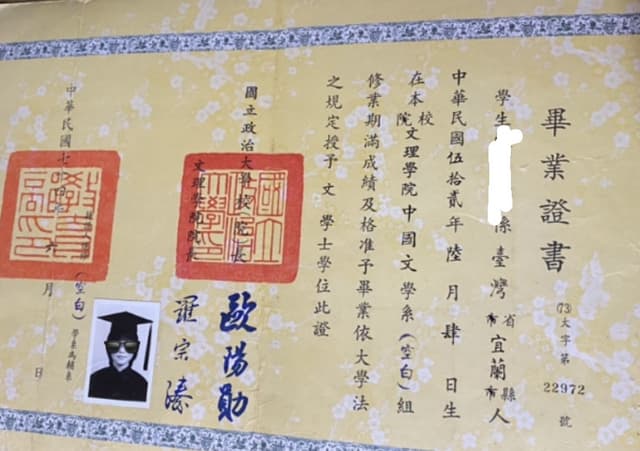 畢業證書
(73)大字第22972號
學生 係臺灣省市宜蘭縣市人
中華民國伍拾貳年陸月肆日生
在本校院文理學院中國文學系(空白)組
修業期滿成績及格准予畢業依大學法
之規定授予文學士學位此證
國立政治大學校(院)長 歐陽勛
文理學院院長 羅宗濤
中華民國七十 年六月 日
(空白)學系為輔系